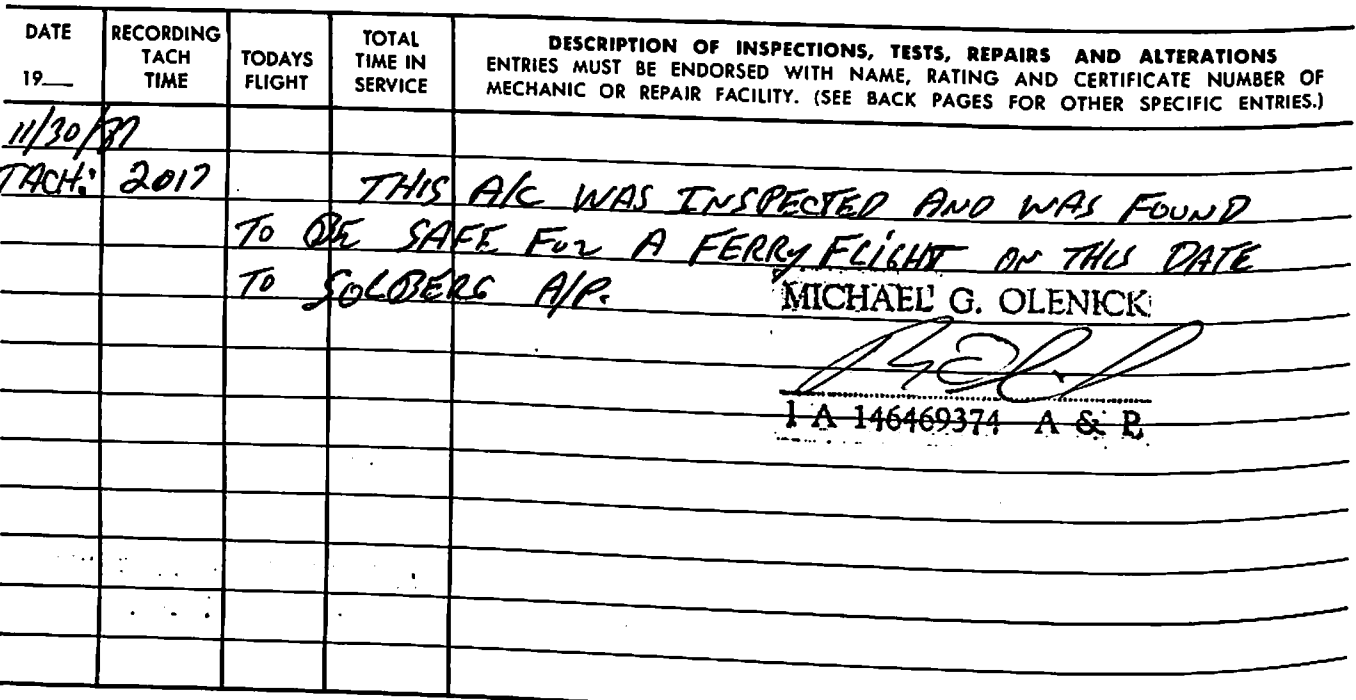 DATE
19__
RECORDING
TACH
TIME
TODAYS
FLIGHT
TOTAL
TIME IN
SERVICE
DESCRIPTION OF INSPECTIONS, TESTS, REPAIRS AND ALTERATIONS
ENTRIES MUST BE ENDORSED WITH NAME, RATING AND CERTIFICATE NUMBER OF
MECHANIC OR REPAIR FACILITY. (SEE BACK PAGES FOR OTHER SPECIFIC ENTRIES.)
11/30/87
TACH: 2017 THIS A/C WAS INSPECTED AND WAS FOUND
TO BE SAFE FOR A FERRY FLIGHT ON THIS DATE
TO SOLBERG A/P.
MICHAEL G. OLENICK
I A 146469374 A & P